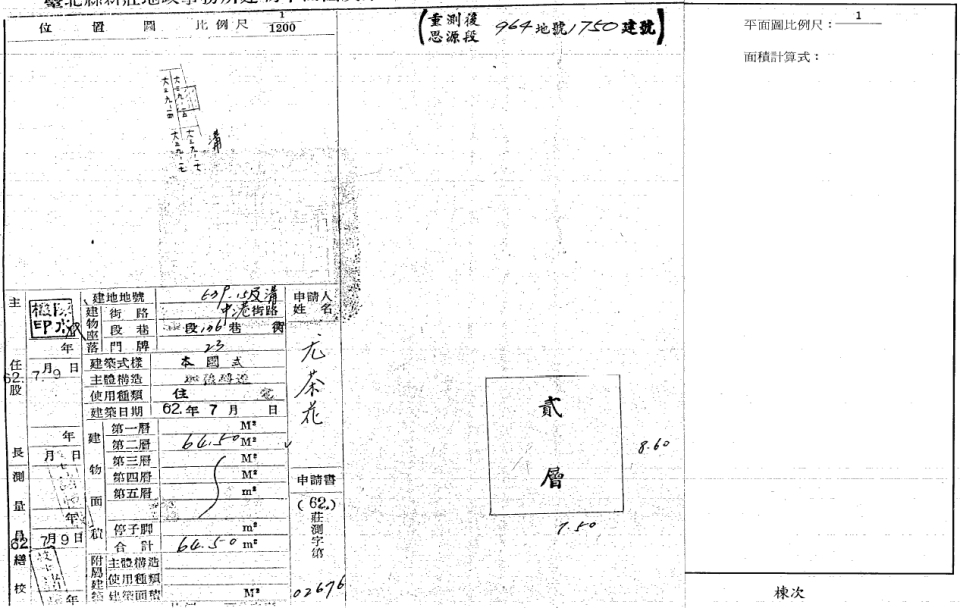 位置圖 比例尺 1/1200
(重測後 思源段 964地號1750建號)
平面圖比例尺：1
面積計算式：
溝
建地地號
中港街路
建物座落 街路
段巷 段106巷
門牌 23
建築式樣 本國式
主體構造
使用種類 住
建築日期 62.年7月 日
建物面積
第一層 M²
第二層 64.50 M²
第三層 M²
第四層 M²
第五層 m²
停子脚 m²
合計 64.50 m²
附屬建物 主體構造
使用種類
建築面積 M²
申請人姓名
茶花
申請書
(62.)莊測字第
02676
主任
股長
測量員
繕校
年
62. 7月9日
年
月 日
年
62 7月9日
年
貳層
8.60
7.50
棟次